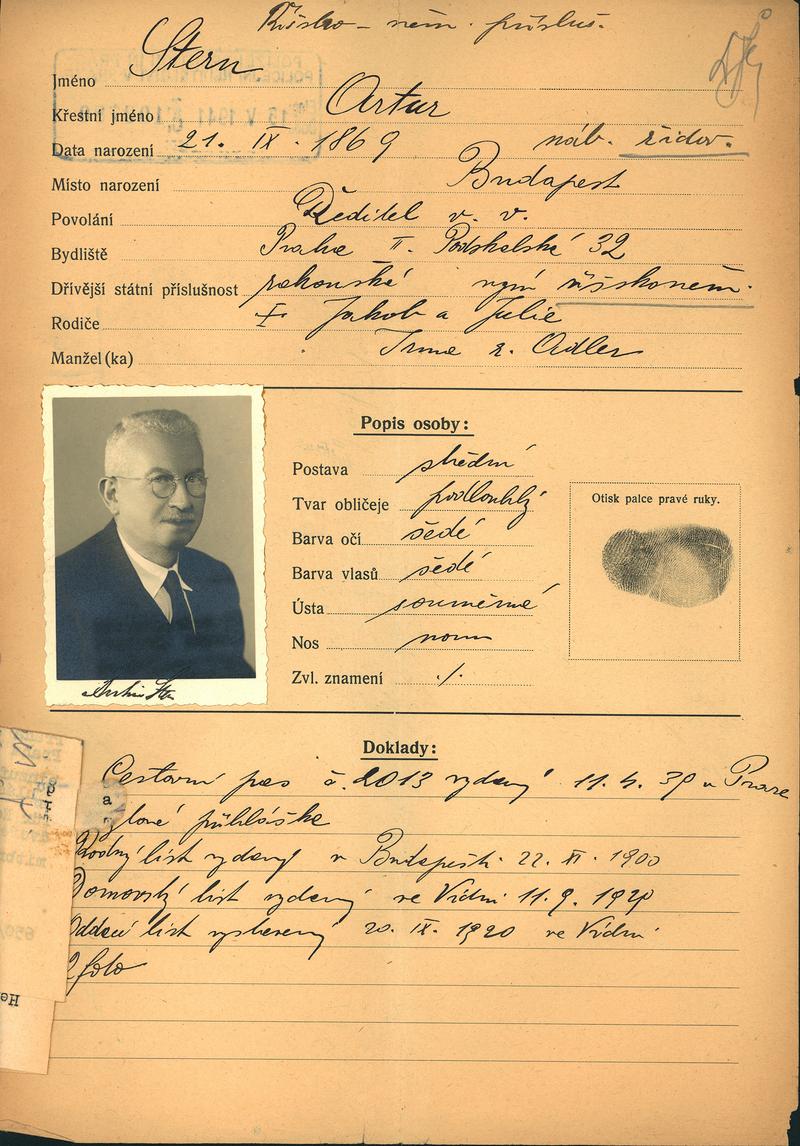 Říšsko-něm. přísluš.
Jméno Stern
Křestní jméno Artur
Data narození 21. IX. 1869 náb. židov.
Místo narození Budapest
Povolání Ředitel v. v.
Bydliště Praha II. Podskalská 32
Dřívější státní příslušnost rakouská nyní říšskoněm.
Rodiče Jakob a Julie
Manžel(ka) Irma r. Adler
Popis osoby:
Postava střední
Tvar obličeje podlouhlý
Barva očí šedé
Barva vlasů šedé
Ústa souměrné
Nos norm
Zvl. znamení ./.
Otisk palce pravé ruky.
Doklady:
Cestovní pas č. 2013 vydaný v Praze
přihláška
Rodný list vydaný v Budapešti 22. XI. 1900
Domovský list vydaný ve Vídni 11. 9. 1920
Oddací list vystavený 20. IX. 1920 ve Vídni
2 foto